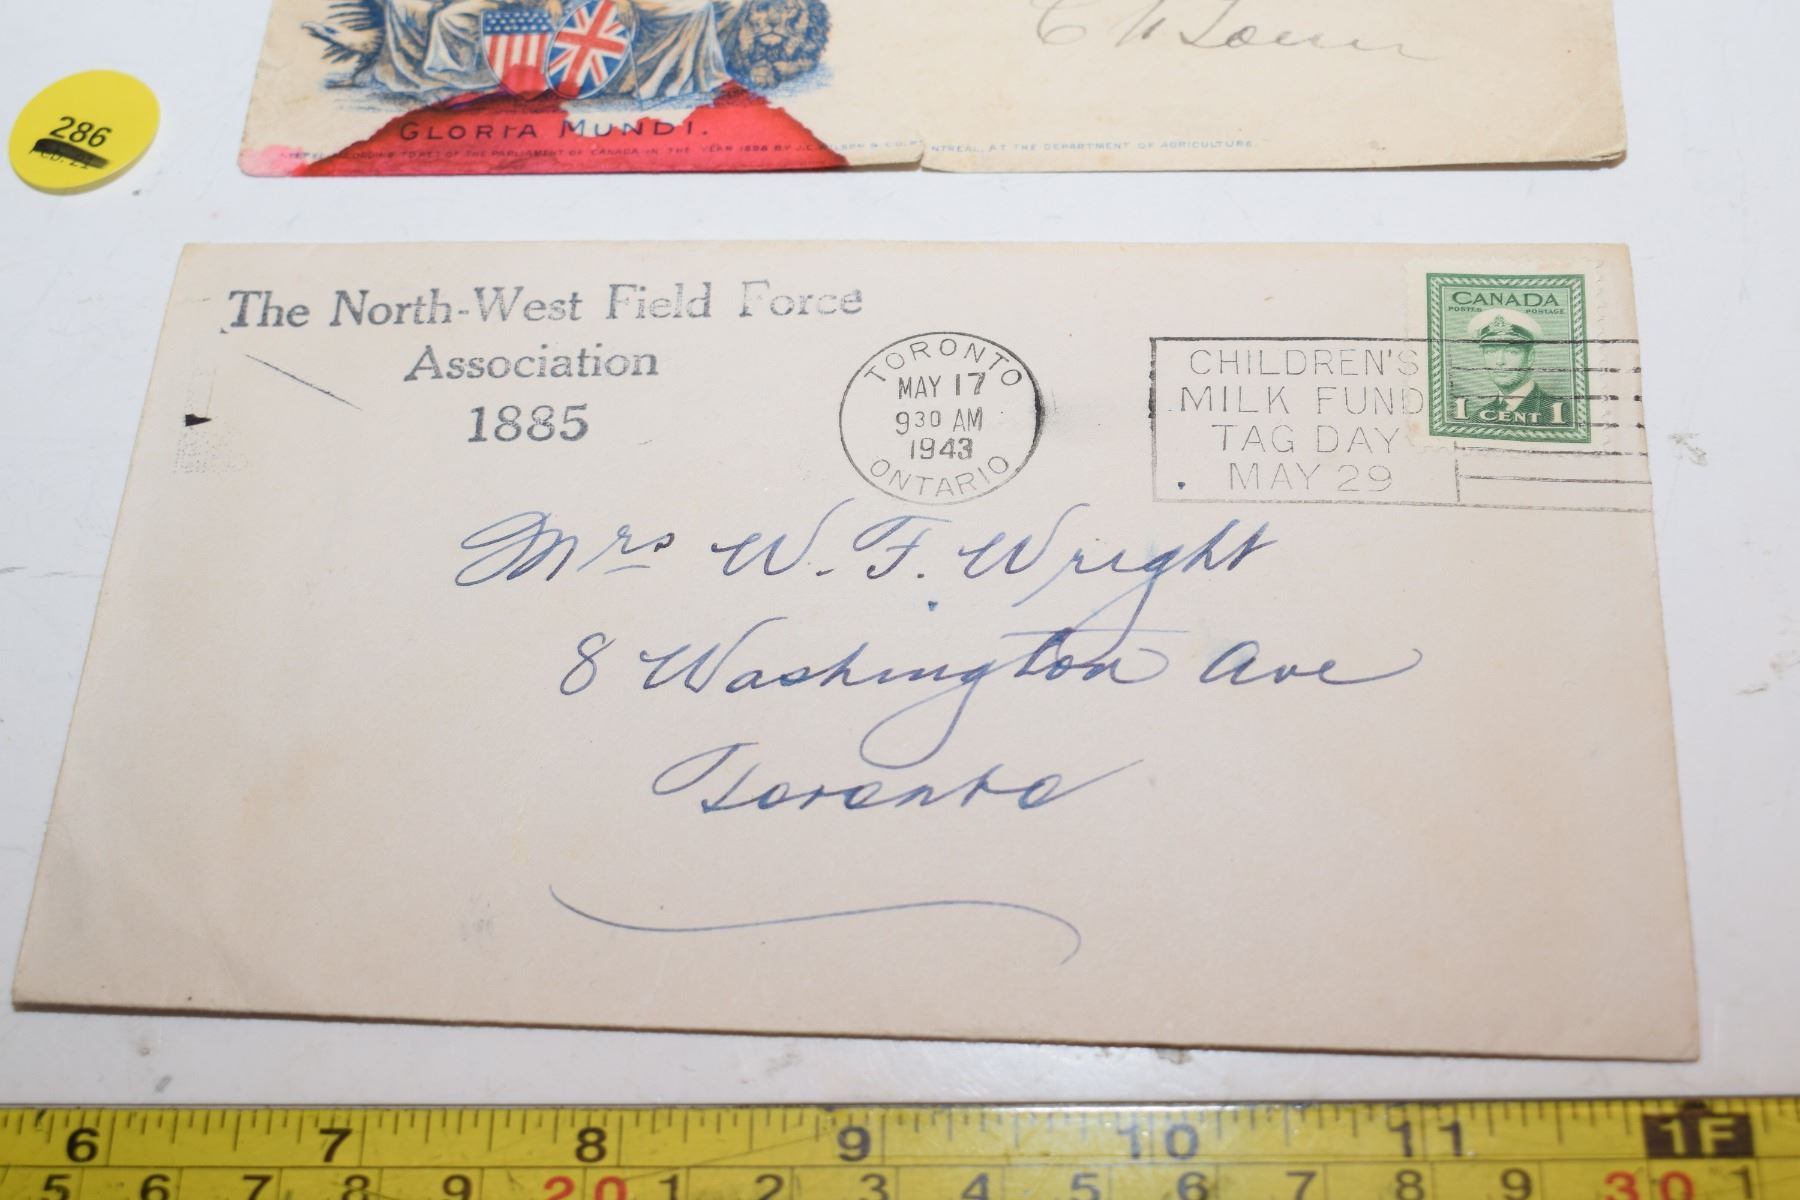 GLORIA MUNDI.
ACCORDING TO ACT OF THE PARLIAMENT OF CANADA IN THE YEAR 1898 BY J.C. WILSON & CO. MONTREAL, AT THE DEPARTMENT OF AGRICULTURE.
286
The North-West Field Force
Association
1885
TORONTO
MAY 17
930 AM
1943
ONTARIO
CHILDREN'S
MILK FUND
TAG DAY
MAY 29
CANADA
POSTES POSTAGE
1 CENT 1
Mrs W. F. Wright
8 Washington Ave
Toronto
6 7 8 9 10 11 1F
5 6 7 8 9 20 1 2 3 4 5 6 7 8 9 30 1